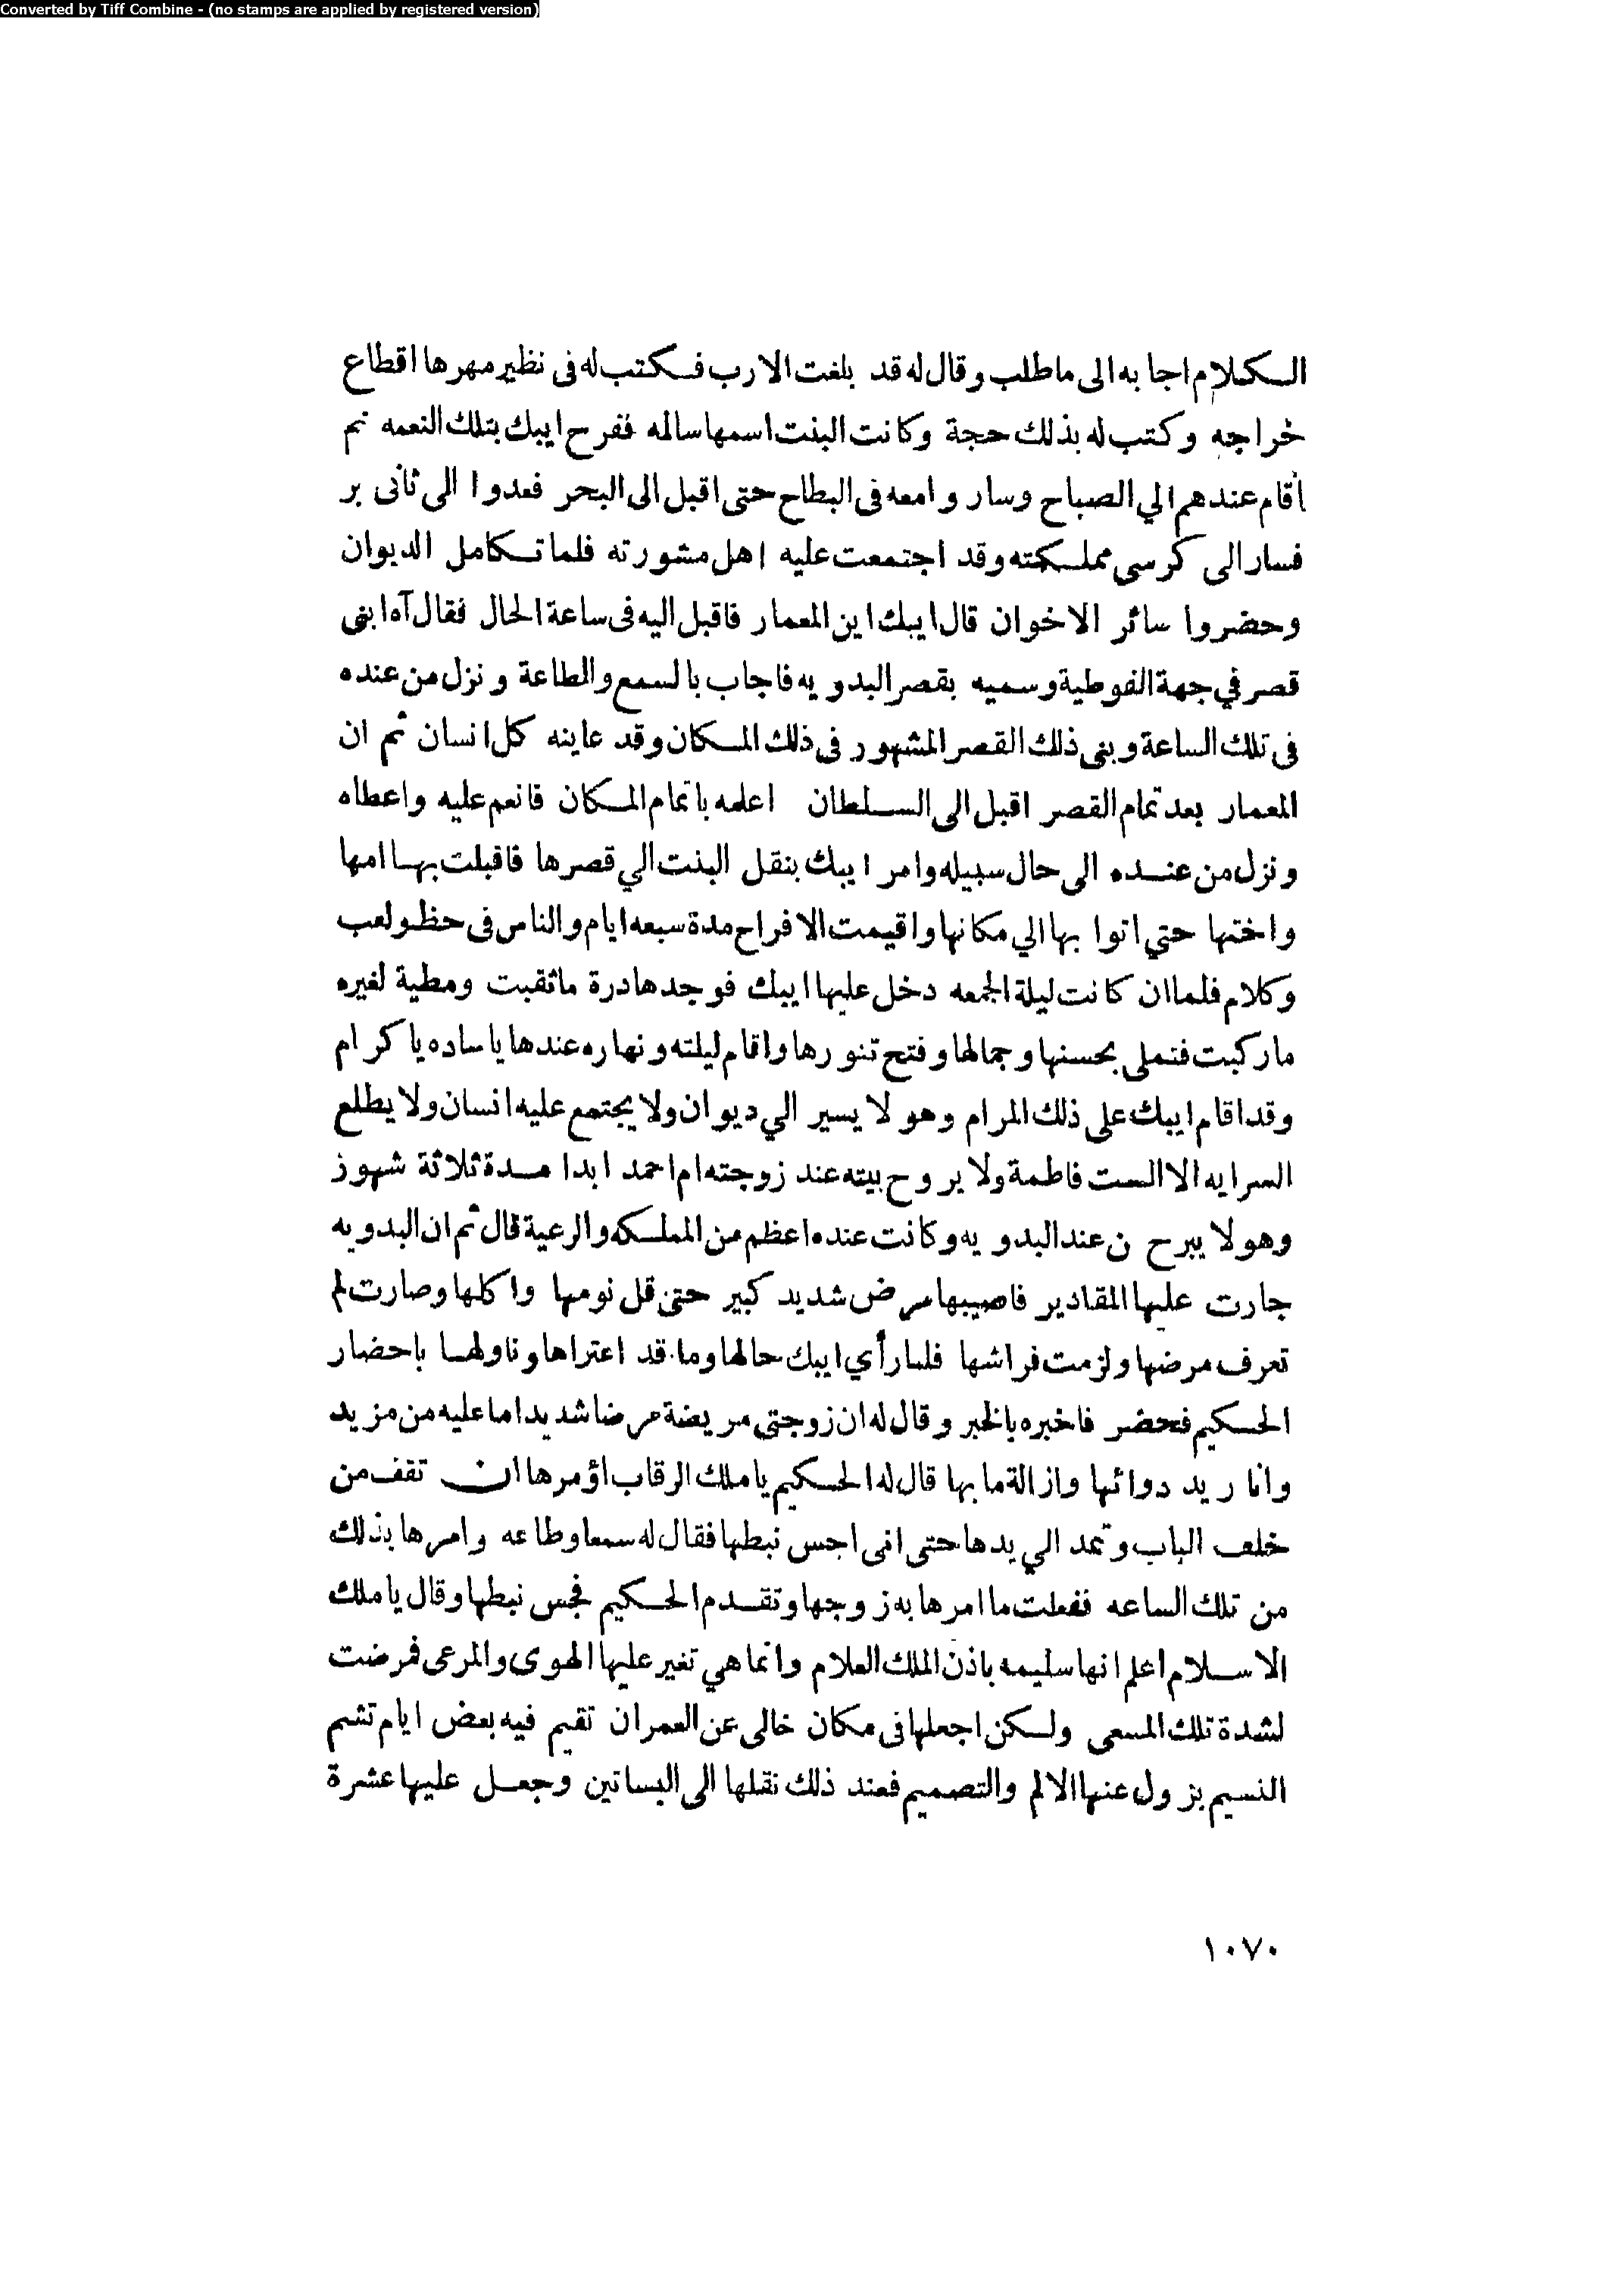 Converted by Tiff Combine - (no stamps are applied by registered version)
الكلام اجابه الى ما طلب وقال له قد بلغت الارب فكتب له فى نظير مهرها اقطاع
خراجه وكتب له بذلك حجة وكانت البنت اسمها سالمه ففرح ايبك بتلك النعمه ثم
أقام عندهم الي الصباح وساروا معه فى البطاح حتى اقبل الى البحر فعدوا الى ثانى بر
فسار الى كرسى مملكته وقد اجتمعت عليه اهل مشورته فلما تكامل الديوان
وحضروا سائر الاخوان قال ايبك اين المعمار فاقبل اليه فى ساعة الحال فقال آه ابنى
قصر في جهة الفوطية وسميه بقصر البدويه فاجاب بالسمع والطاعة ونزل من عنده
فى تلك الساعة وبنى ذلك القصر المشهور فى ذلك المكان وقد عاينه كل انسان ثم ان
المعمار بعد تمام القصر اقبل الى السلطان اعلمه باتمام المكان فانعم عليه واعطاه
ونزل من عنده الى حال سبيله وامر ايبك بنقل البنت الي قصرها فاقبلت بها امها
واختها حتي اتوا بها الي مكانها واقيمت الافراح مدة سبعه ايام والناس فى حظ ولعب
وكلام فلما ان كانت ليلة الجمعه دخل عليها ايبك فوجدها درة ماثقبت ومطية لغيره
ماركبت فتملى بحسنها وجمالها وفتح تنورها واقام ليلته ونهاره عندها ياساده ياكرام
وقد اقام ايبك على ذلك المرام وهو لا يسير الي ديوان ولا يجتمع عليه انسان ولا يطلع
السرايه الا الست فاطمة ولا يروح بيته عند زوجته ام احمد ابدا مدة ثلاثة شهوز
وهو لا يبرح ن عند البدويه وكانت عنده اعظم من المملكه والرعية قال ثم ان البدويه
جارت عليها المقادير فاصيبها مرض شديد كبير حتى قل نومها واكلها وصارت لم
تعرف مرضها ولزمت فراشها فلما رأي ايبك حالها وما قد اعتراها وناولها باحضار
الحكيم فحضر فاخبره بالخبر وقال له ان زوجتى مريضة مرضا شديدا ما عليه من مزيد
وانا ريد دوائها وازالة ما بها قال له الحكيم ياملك الرقاب اؤمرها ان تقف من
خلف الباب وتمد الي يدها حتى انى اجس نبطها فقال له سمعا وطاعه وامرها بذلك
من تلك الساعه ففعلت ما امرها به زوجها وتقدم الحكيم فجس نبطها وقال ياملك
الاسلام اعلم انها سليمه باذن الملك العلام وانما هي تغير عليها الهوى والمرعى فمرضت
لشدة تلك المسعى ولكن اجعلها فى مكان خالى عن العمران تقيم فيه بعض ايام تشم
النسيم يزول عنها الالم والتصميم فعند ذلك نقلها الى البساتين وجعل عليها عشرة
١٠٧٠